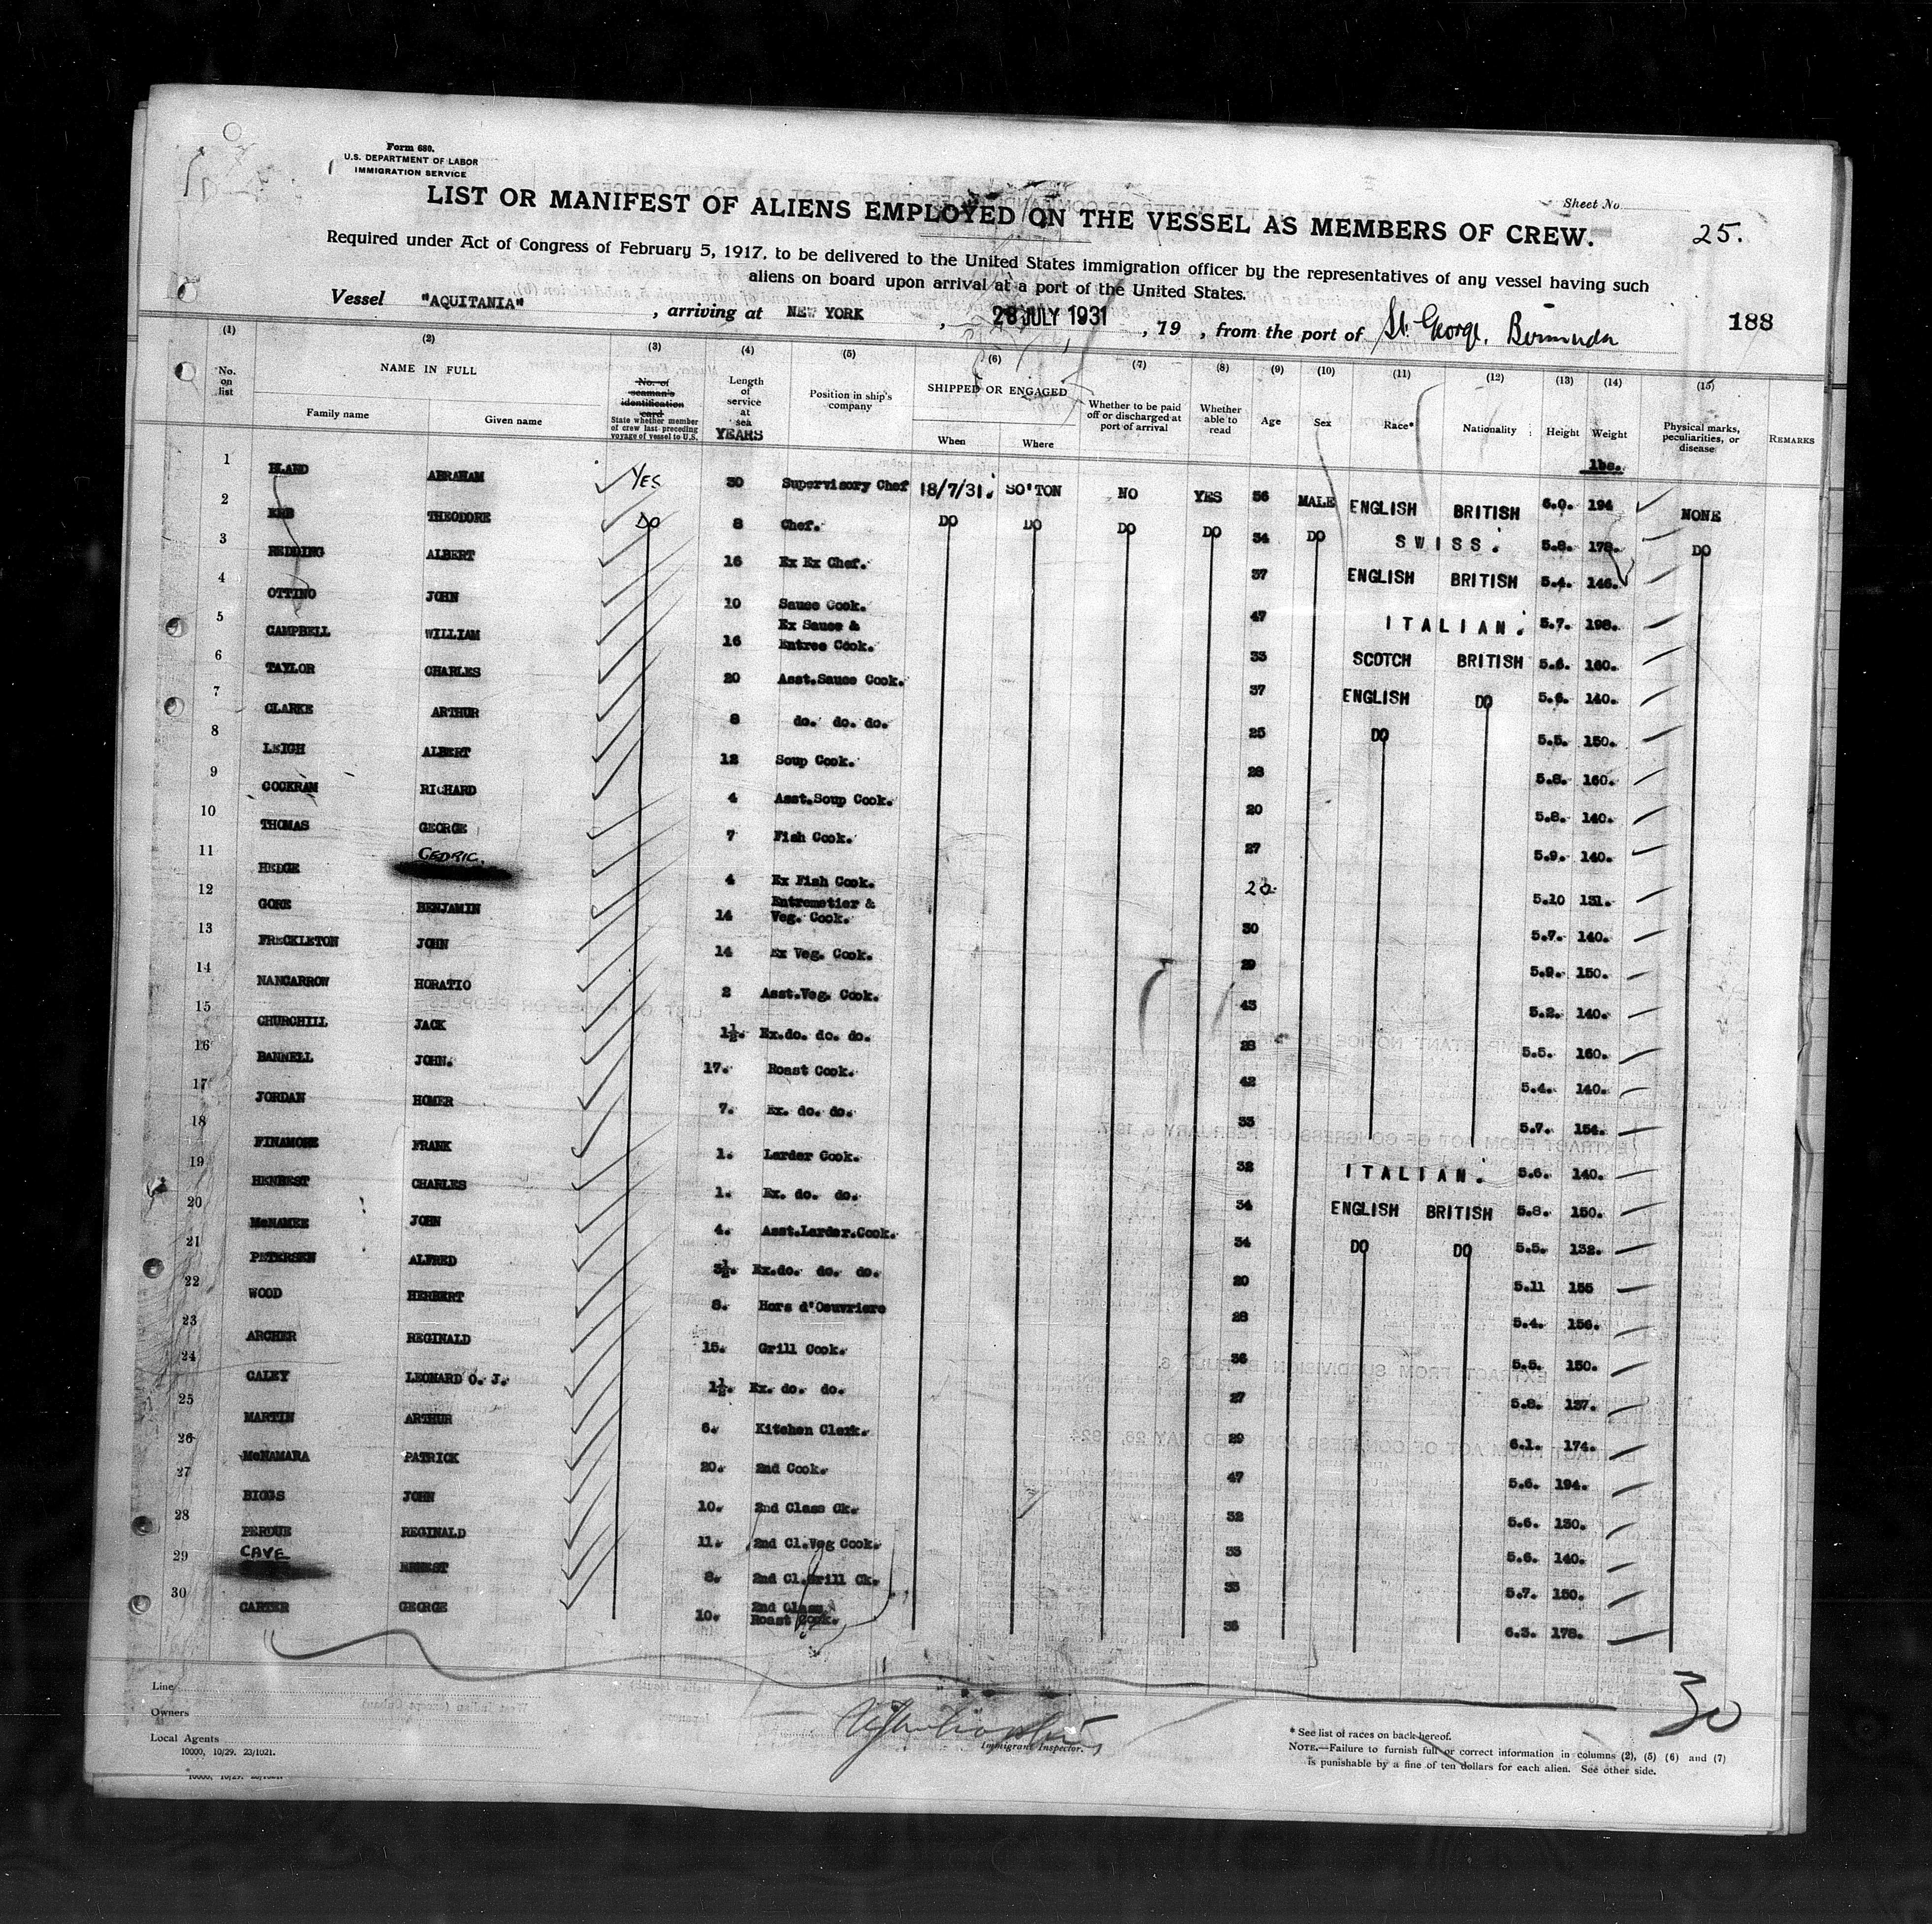 Form 680.
U.S. DEPARTMENT OF LABOR
IMMIGRATION SERVICE
Sheet No.
25.
LIST OR MANIFEST OF ALIENS EMPLOYED ON THE VESSEL AS MEMBERS OF CREW.
Required under Act of Congress of February 5, 1917, to be delivered to the United States immigration officer by the representatives of any vessel having such
aliens on board upon arrival at a port of the United States.
Vessel "AQUITANIA", arriving at NEW YORK, 28 JULY 1931, 19 , from the port of St. George, Bermuda
188
(1) (2) (3) (4) (5) (6) (7) (8) (9) (10) (11) (12) (13) (14) (15)
No. on list NAME IN FULL Family name Given name No. of seaman's identification card State whether member of crew last preceding voyage of vessel to U.S. Length of service at sea YEARS Position in ship's company SHIPPED OR ENGAGED When Where Whether to be paid off or discharged at port of arrival Whether able to read Age Sex Race* Nationality Height Weight lbs. Physical marks, peculiarities, or disease REMARKS
1 BLAND ABRAHAM YES 30 Supervisory Chef 18/7/31. SO'TON NO YES 56 MALE ENGLISH BRITISH 6.0. 194 NONE
2 ERB THEODORE DO 8 Chef. DO DO DO DO 34 DO SWISS. 5.8. 178. DO
3 REDDING ALBERT 16 Ex Ex Chef. 37 ENGLISH BRITISH 5.4. 146.
4 OTTINO JOHN 10 Sauce Cook. 47 ITALIAN. 5.7. 198.
5 CAMPBELL WILLIAM 16 Ex Sauce & Entree Cook. 33 SCOTCH BRITISH 5.6. 160.
6 TAYLOR CHARLES 20 Asst.Sauce Cook. 37 ENGLISH DO 5.6. 140.
7 CLARKE ARTHUR 8 do. do. do. 25 DO 5.5. 150.
8 LEIGH ALBERT 12 Soup Cook. 28 5.8. 160.
9 COCKRAM RICHARD 4 Asst.Soup Cook. 20 5.8. 140.
10 THOMAS GEORGE 7 Fish Cook. 27 5.9. 140.
11 HEDGE CEDRIC. 4 Ex Fish Cook. 20. 5.10 151.
12 GORE BENJAMIN 14 Entremetier & Veg. Cook. 30 5.7. 140.
13 FRECKLETON JOHN 14 Ex Veg. Cook. 29 5.9. 150.
14 NANCARROW HORATIO 2 Asst.Veg. Cook. 43 5.2. 140.
15 CHURCHILL JACK 1½. Ex.do. do. do. 28 5.5. 160.
16 BANNELL JOHN. 17. Roast Cook. 42 5.4. 140.
17 JORDAN HOMER 7. Ex. do. do. 33 5.7. 154.
18 FINAMORE FRANK 1. Larder Cook. 32 ITALIAN. 5.6. 140.
19 HENBEST CHARLES 1. Ex. do. do. 34 ENGLISH BRITISH 5.8. 150.
20 McNAMEE JOHN 4. Asst.Larder.Cook. 34 DO DO 5.5. 132.
21 PETERSEN ALFRED 3½. Ex.do. do. do. 20 5.11 155
22 WOOD HERBERT 8. Hors d'Oeuvriere 28 5.4. 156.
23 ARCHER REGINALD 15. Grill Cook. 36 5.5. 150.
24 CALEY LEONARD O. J. 1½. Ex. do. do. 27 5.8. 137.
25 MARTIN ARTHUR 6. Kitchen Clerk. 29 6.1. 174.
26 McNAMARA PATRICK 20. 2nd Cook. 47 5.6. 194.
27 BIGGS JOHN 10. 2nd Class Ck. 32 5.6. 130.
28 PERDUE REGINALD 11. 2nd Cl.Veg Cook. 33 5.6. 140.
29 CAVE ERNEST 8. 2nd Cl.Grill Ck. 33 5.7. 150.
30 CARTER GEORGE 10. 2nd Class Roast Cook. 36 6.3. 178.
30
Line
Owners
Local Agents
10000, 10/29. 23/1021.
Immigrant Inspector.
* See list of races on back hereof.
NOTE.—Failure to furnish full or correct information in columns (2), (5) (6) and (7)
is punishable by a fine of ten dollars for each alien. See other side.